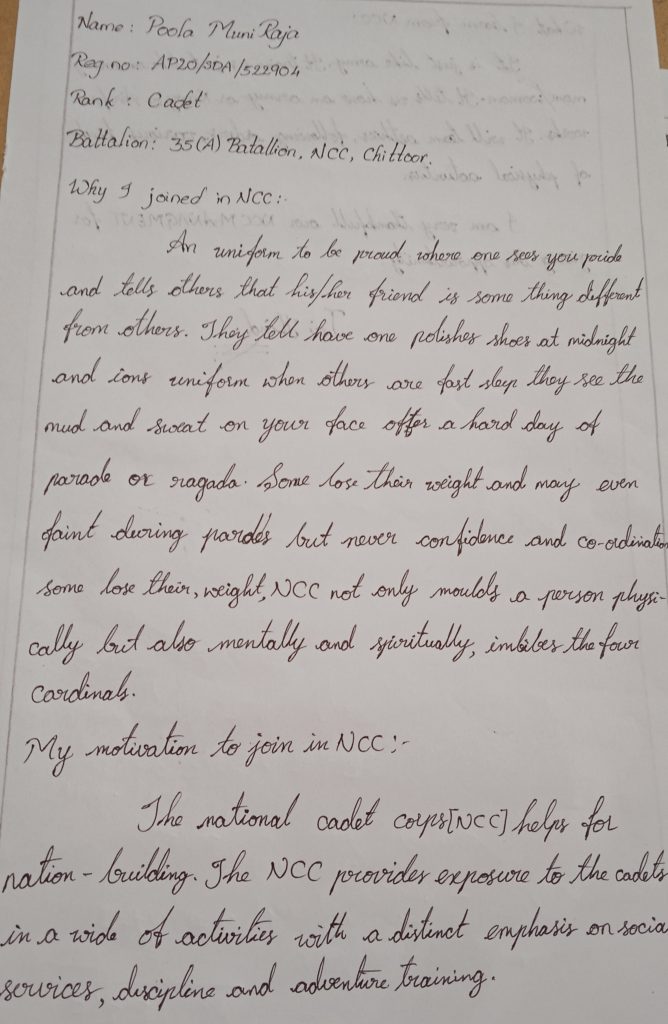 Name : Poola Muni Raja
Reg no : AP20/SDA/522904
Rank : Cadet
Battalion: 35(A) Batallion, NCC, Chittoor.
Why I joined in NCC:-
An uniform to be proud where one sees you pride
and tells others that his/her friend is some thing different
from others. They tell have one polishes shoes at midnight
and ions uniform when others are fast sleep they see the
mud and sweat on your face offer a hard day of
parade or ragada. Some lose their weight and may even
faint during pardes but never confidence and co-ordination
some lose their, weight, NCC not only moulds a person physi-
cally but also mentally and spiritually, imbibes the four
Cardinals.
My motivation to join in NCC:-
The national cadet corps[NCC] helps for
nation-building. The NCC provides exposure to the cadets
in a wide of activities with a distinct emphasis on socia
services, discipline and adventure training.